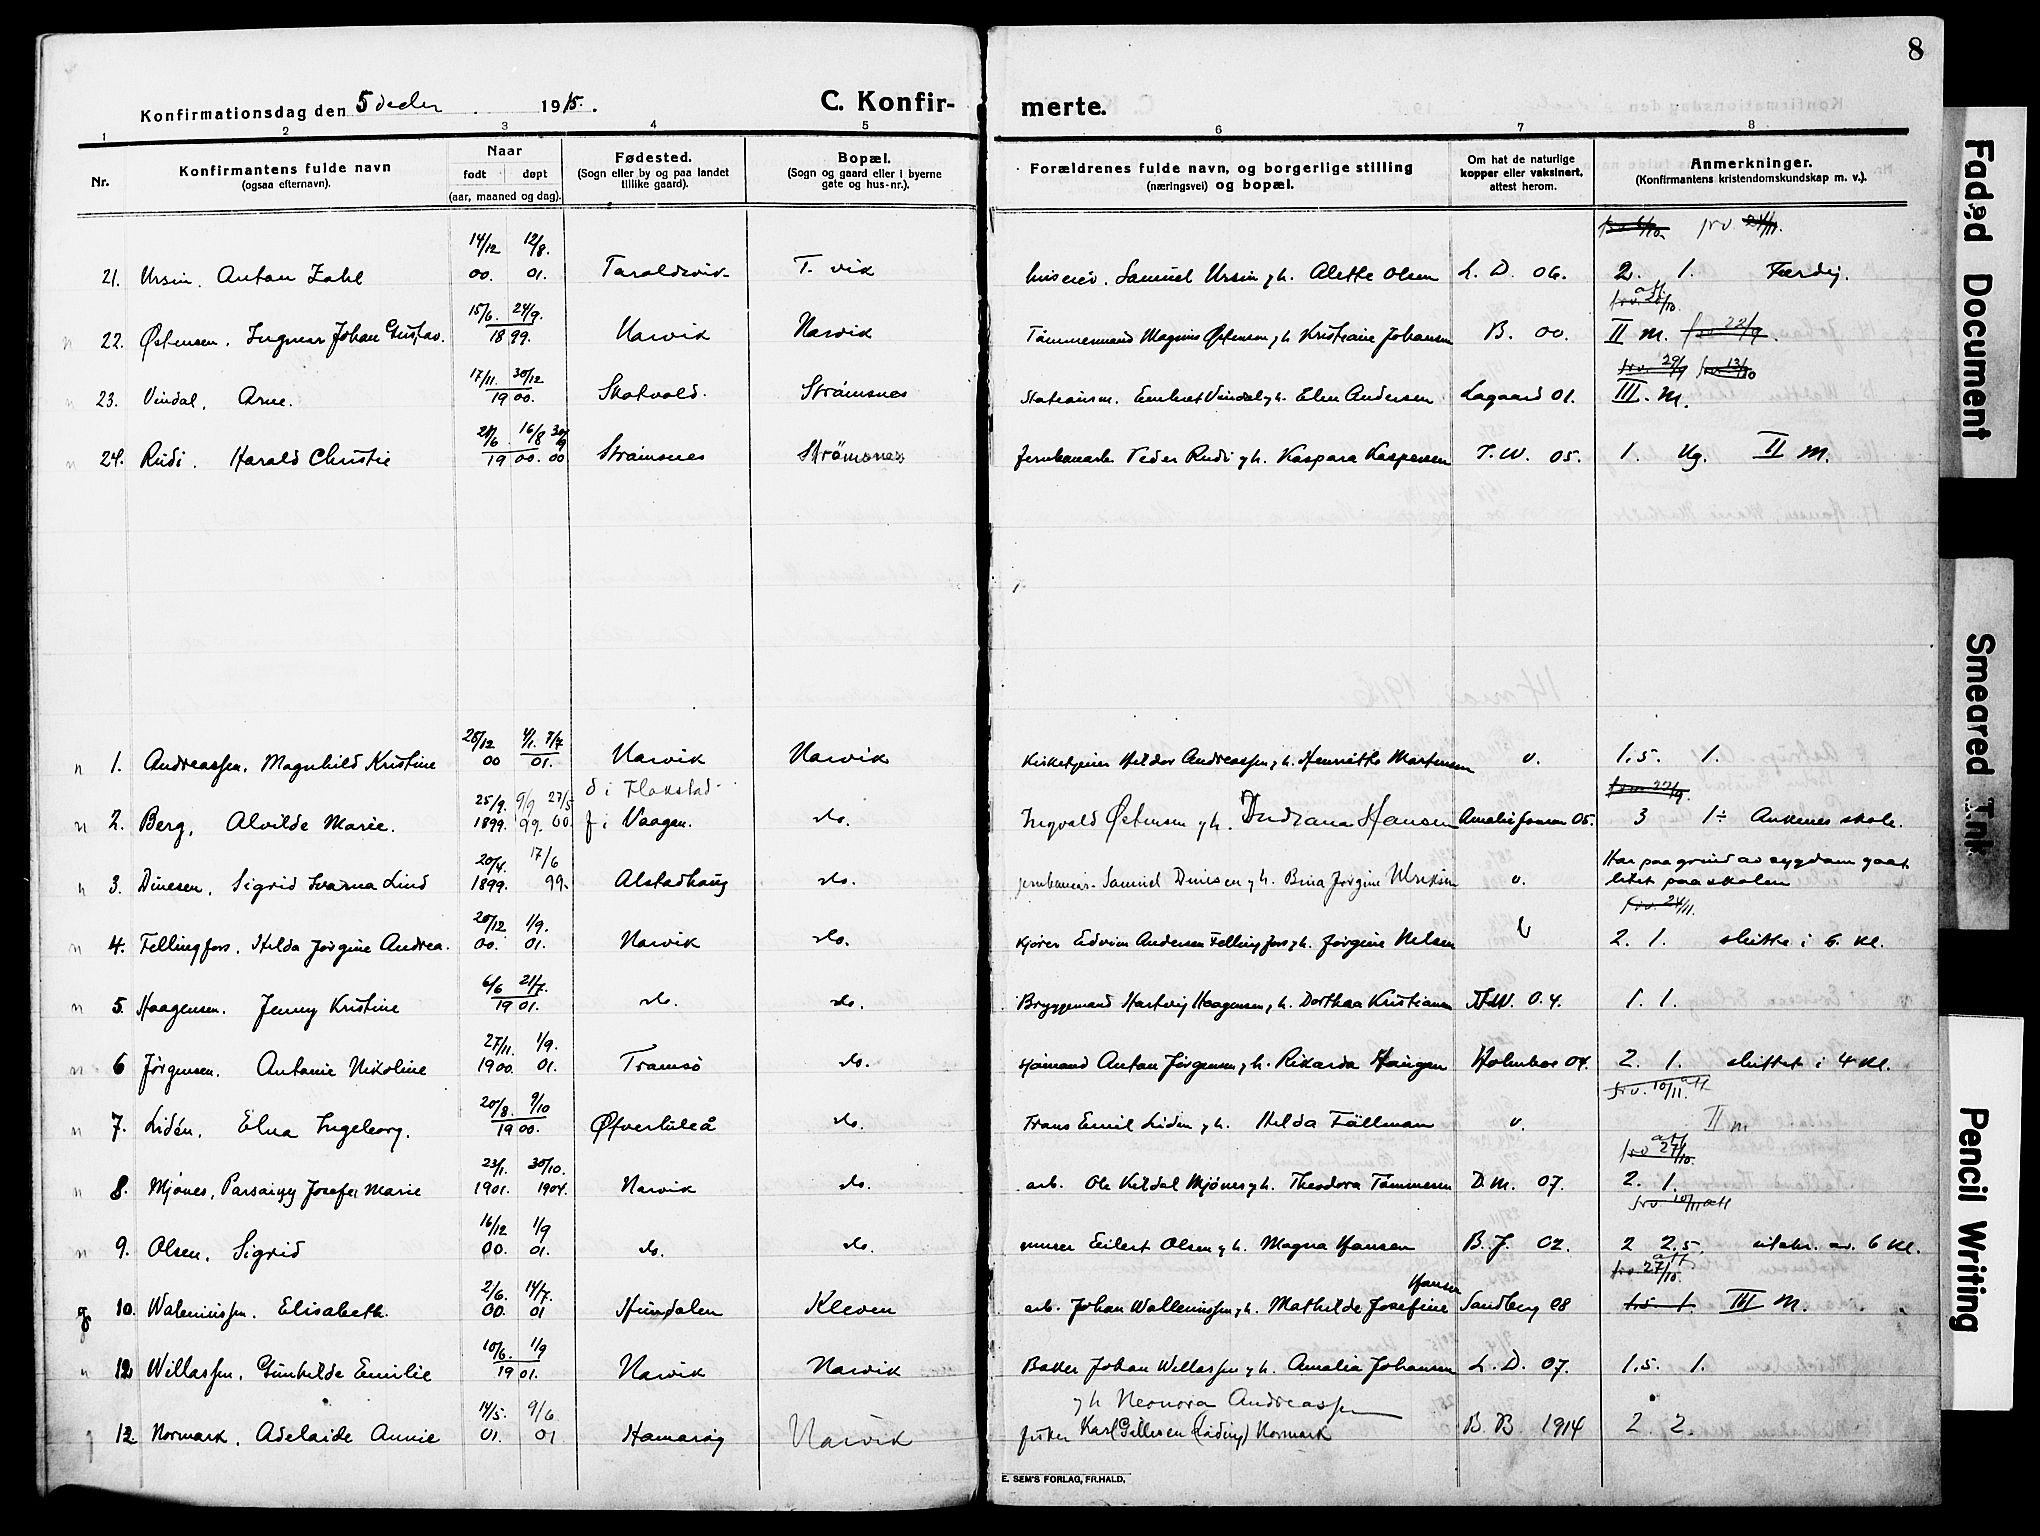 8
Konfirmationsdag den 5 decbr 1915.
C. Konfir- merte.
1 2 3 4 5 6 7 8
Nr.
Konfirmantens fulde navn
(ogsaa efternavn).
Naar
født døpt
(aar, maaned og dag).
Fødested.
(Sogn eller by og paa landet
tillike gaard).
Bopæl.
(Sogn og gaard eller i byerne
gate og hus-nr.).
Forældrenes fulde navn, og borgerlige stilling
(næringsvei) og bopæl.
Om hat de naturlige
kopper eller vaksinert,
attest herom.
Anmerkninger.
(Konfirmantens kristendomskundskap m. v.).
14/12 12/8.
21. Ursin. Anton Zahl 00. 01. Taraldsvik T. vik Samuel Ursin g h. Alette Olsen L. D. 06. 2. 1. Færdig.
15/6. 24/9.
22. Østensen. Ingvar Johan Gustav. 1899. Narvik Narvik Tømmermand Magnus Østensen g h Kristiane Johansen B. 00. II M.
17/11. 30/12
23. Vindal. Arne. 1900. Skatvold. Strømsnes Vindal g h. Elen Andersen Lagaard 01. III. M.
21/6. 16/8 30/9
24. Rudi. Harald Christie 1900. 00 Strømsnes Strømsnes Jernbanearb. Peder Rudi g h. Kaspara Kaspersen T. W. 05. 1. Ug. II M.
28/12 4/1. 7/7
1. Andreassen. Magnhild Kristine 00 01. Narvik Narvik Kirketjener Hildor Andreassen g h. Henriette Mortensen v. 1.5. 1.
d i Flakstad
25/9. 9/9 27/5
2. Berg. Alvilde Marie. 1899. 99. 00. f i Vaagan. do. Ingvald Østensen g h. Indiana Hansen 05. 3 1÷ Ankenes skole.
20/4. 17/6
Har paa grund av sygdom gaat
litet paa skolen
3. Dinesen. Sigrid Svarna Lind 1899. 99. Alstadhaug do. Samuel Dinesen g h. Bina Jørgine Ulriksen v.
20/12 1/9.
4. Fellingfors. Hilda Jørgine Andrea. 00. 01. Narvik do. Kjører Edvin Andersen Fellingfors g h. Jørgine Nilsen v 2. 1. sluttet i 6. kl.
6/6 21/7.
5. Haagensen. Jenny Kristine 1901. do. do. Bryggemand Hartvig Haagensen g h. Dorthea Kristiansen 04. 1. 1.
27/11. 1/9.
6 Jørgensen. Antonie Nikoline 1900. 01. Tromsø do. Sjømand Anton Jørgensen g h. Rikarda Haugen Holmboe 04. 2. 1. sluttet i 4 kl.
20/8. 9/10
7. Lidén. Elna Ingeborg. 1900. Øfverluleå do. Frans Emil Liden g h. Hilda Fällman v. II M
23/1. 30/10.
8. Mjønes, Josefa Marie 1901. 1904. Narvik do. arb. Ole Kildal Mjønes g h. Theodora Tømmeren D. M. 07. 2. 1.
16/12 1/9
9. Olsen. Sigrid 00. 01. do. do. murer Eilert Olsen g h. Magna Hansen B. J. 02. 2 2.5. av. 6 kl.
2/6. 14/7.
Hansen
10. Waleniussen. Elisabeth. 00. 01 Hundalen Kleven arb. Johan Walleniussen g h. Mathilde Josefine Sandberg 08 1.5 1. III M.
10/6. 1/9
12 Willassen. Gunhilde Emilie 1901. Narvik Narvik Baker Johan Willassen g h. Amalia Johansen L. D. 07. 1.5. 1.
g h Neonora Andreassen
14/5. 9/6
12. Normark. Adelaide Annie 01. 01 Hamarøy Narvik fisker Karl Gillesen (Løding) Normark B. B 1914 2. 2.
E. SEM'S FORLAG, FR.HALD.
Faded Document
Smeared Ink
Pencil Writing